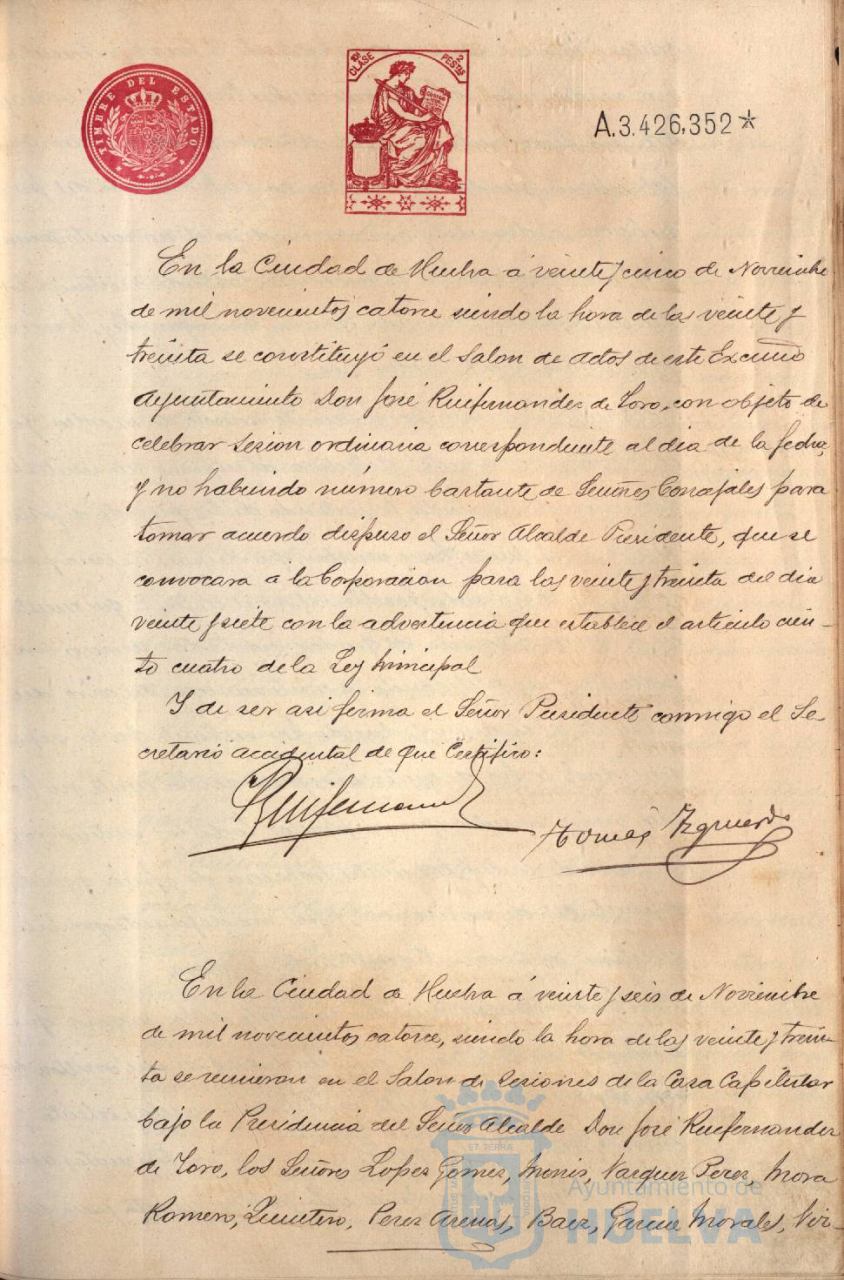 TIMBRE DEL ESTADO
10ª CLASE
2 PESTAS
A.3.426,352*
En la Ciudad de Huelva á veinte y cinco de Noviembre
de mil novecientos catorce siendo la hora de las veinte y
treinta se constituyó en el Salon de actos de este Excmo
Ayuntamiento Don José Ruifernandez de Toro, con objeto de
celebrar sesion ordinaria correspondiente al dia de la fecha,
y no habiendo número bastante de Señores Concejales para
tomar acuerdo dispuso el Señor Alcalde Presidente, que se
convocara á la Corporacion para las veinte y treinta del dia
veinte y siete con la advertencia que establece el articulo cien-
to cuatro de la Ley Municipal
Y de ser asi firma el Señor Presidente conmigo el Se-
cretario accidental de que Certifico:
Ruifernandez
Tomás Izquierdo
En la Ciudad de Huelva á veinte y seis de Noviembre
de mil novecientos catorce, siendo la hora de las veinte y trein-
ta se reunieron en el Salon de Sesiones de la Casa Capitular
bajo la Presidencia del Señor Alcalde Don José Ruifernandez
de Toro, los Señores Lopez Gomez, Monis, Vazquez Perez, Mora
Romero, Quintero, Perez Arenas, Baez, Garcia Morales,
Ayuntamiento de
HUELVA